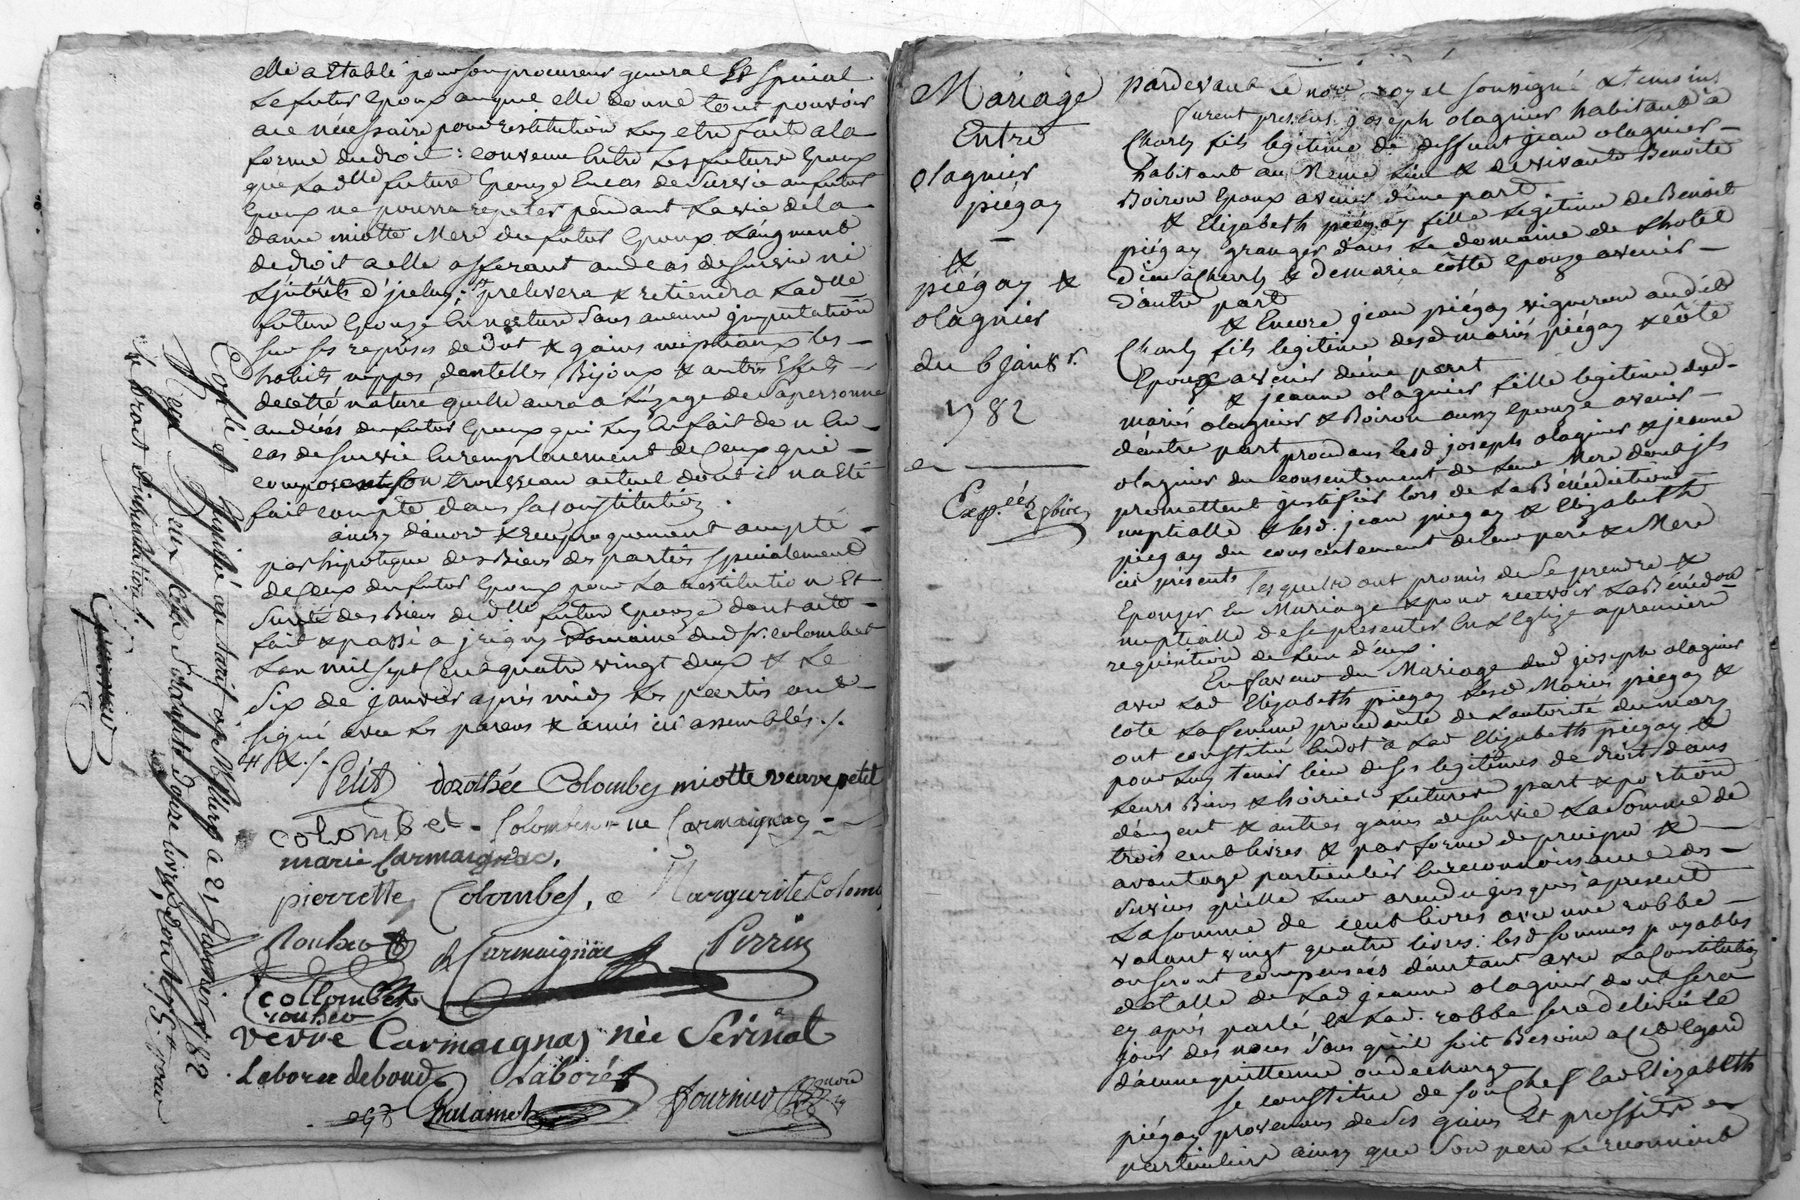 elle a Etabli pour son procureur general Et Special
Le futur Epoux auquel elle donne tout pouvoir
a ce nécessaire pour restitution Luy etre fait a la
forme du droit : convenu Entre Les futurs Epoux
que Lad.lle future Epouze En cas de Survie au futur
Epoux ne pourra repeter pendant La vie de la
dame miotte Mere du futur Epoux L'augment
de droit a elle afferant aud. cas de Survie ni
Les jnterêts d'jceluy ; prelevera & retiendra Lad.lle
future Epouze En nature Sans aucune jmputation
Sur Ses reprises de Dot & gains nuptiaux Les
habits nippes dentelles Bijoux & autres Effets
de cette nature quelle aura a L'uzage de Sa personne
au deces du futur Epoux qui Luy En fait don En
cas de Survie En remplacement de Ceux qui
composent Son trousseau actuel dont il n'a Eté
fait compte dans Sa Constitution
ainsy d'acord & reciproquement accepté
par hipoteque des Biens des parties Specialement
de Ceux du futur Epoux pour La restitution Et
Sureté des Biens de d.lle future Epouze dont acte
fait & passé a jrigny Domaine dud. Sr. Colombet
L'an mil Sept Cent quatre vingt deux & Le
Six de janvier après midy Les parties ont
Signé avec Les parens & amis ici assemblés ./.
Petit dorothée Colombez miotte veuve petit
colombet - Colombet ne Carmaignac
marie Carmaignac,
pierrette Colombet, Marguerite Colomb
Roulzeo Carmaignac Perrin
Collombet
veuve Carmaignac née Serinat
Laboree debond Laboré
Palamet fournier
Controllé et Insinué au tarif à Millery le 21 Janvier 1782
Reçu
Le droit d'insinuation ./.
Mariage
Entre
olagnier
piégay
&
piégay &
olagnier
du 6 janv.r
1782
Exp.ées 2 fois
Pardevant Le no.re royal Soussigné & temoins
furent presens joseph olagnier habitant a
Charly fils legitime de deffunt jean olagnier
habitant au Meme Lieu & de vivante Benoite
Boiron Epoux avenir d'une part
& Elizabeth piégay fille Legitime de Benoit
piégay granger dans Le domaine de L'hotel
dieu a Charly & de marie côtte Epouze avenir
d'autre part
& Encore jean piégay vigneron aud. lieu
Charly fils legitime desd. mariés piégay & côte
Epoux avenir d'une part
& jeanne olagnier fille legitime desd.
mariés olagnier & Boiron aussy Epouze avenir
d'autre part procedans Lesd. joseph olagnier & jeanne
olagnier du consentement de Leur Mere dont jls
promettent justifier lors de La Bénédiction
nuptialle & Lesd. jean piégay & Elizabeth
piégay du consentement de leur pere & Mere
ici présents Lesquelles ont promis de Se prendre &
Epouzer En Mariage & pour recevoir La Bénédon
nuptialle de Se presenter En L'Eglize a premiere
requisition de L'un d'eux.
En faveur du Mariage dud. joseph olagnier
avec Lad. Elizabeth piégay Lesd. Mariés piégay &
cote La femme procedante de L'autorité du mary
ont constitué En dot à Lad. Elizabeth piégay &
pour Luy tenir lieu de Ses legitimes de droits dans
Leurs Biens & hoiries futures part & portion
d'augent & autres gains de Survie La Somme de
trois cent livres & par forme de preciput &
avantage particulier En reconnoissance des
Services qu'elle Leur a rendu jusques apresent
La Somme de cent livres avec une robbe
valant vingt quatre livres : lesd. Sommes payables
ou Seront compensées d'autant avec La Constitution
dotalle de Lad. jeanne olagnier dont Sera
cy après parlé, & Lad. robbe Sera delivrée le
jour des noces Sans qu'il Soit Besoin a cet Egard
d'aucune quittance ou decharge
Se constitue de Son Chef Lad. Elizabeth
piégay provenans de Ses gains Et proffits en
particulier ainsy que Son pere Le reconnoit